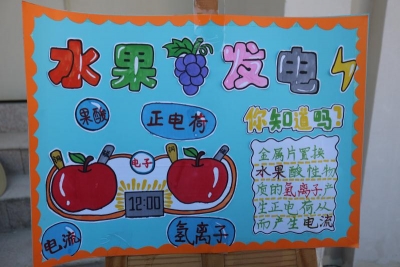 水果发电
果酸
正电荷
你知道吗?
电子
12:00
电流
氢离子
金属片置换
水果酸性物
质的氢离子产
生正电荷从
而产生电流